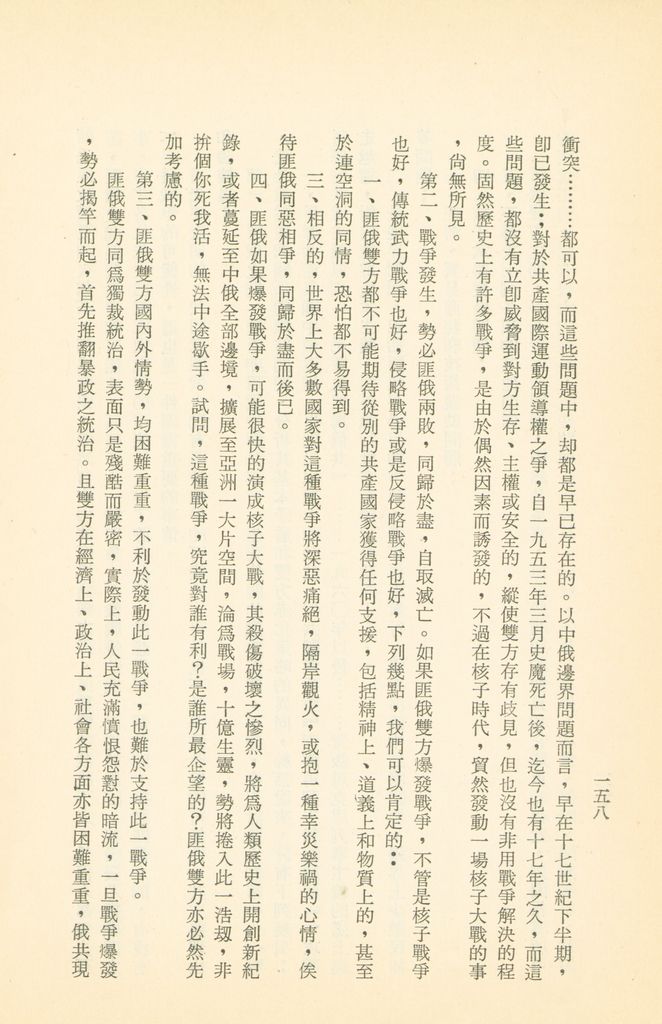 衝突………都可以，而這些問題中，却都是早已存在的。以中俄邊界問題而言，早在十七世紀下半期，
卽已發生；對於共產國際運動領導權之爭，自一九五三年三月史魔死亡後，迄今也有十七年之久，而這
些問題，都沒有立卽威脅到對方生存、主權或安全的，縱使雙方存有歧見，但也沒有非用戰爭解決的程
度。固然歷史上有許多戰爭，是由於偶然因素而誘發的，不過在核子時代，貿然發動一場核子大戰的事
，尙無所見。
第二、戰爭發生，勢必匪俄兩敗，同歸於盡，自取滅亡。如果匪俄雙方爆發戰爭，不管是核子戰爭
也好，傳統武力戰爭也好，侵略戰爭或是反侵略戰爭也好，下列幾點，我們可以肯定的：
一、匪俄雙方都不可能期待從別的共產國家獲得任何支援，包括精神上、道義上和物質上的，甚至
於連空洞的同情，恐怕都不易得到。
三、相反的，世界上大多數國家對這種戰爭將深惡痛絕，隔岸觀火，或抱一種幸災樂禍的心情，俟
待匪俄同惡相爭，同歸於盡而後已。
四、匪俄如果爆發戰爭，可能很快的演成核子大戰，其殺傷破壞之慘烈，將爲人類歷史上開創新紀
錄，或者蔓延至中俄全部邊境，擴展至亞洲一大片空間，淪爲戰場，十億生靈，勢將捲入此一浩刼，非
拚個你死我活，無法中途歇手。試問，這種戰爭，究竟對誰有利？是誰所最企望的？匪俄雙方亦必然先
加考慮的。
第三、匪俄雙方國內外情勢，均困難重重，不利於發動此一戰爭，也難於支持此一戰爭。
匪俄雙方同爲獨裁統治，表面只是殘酷而嚴密，實際上，人民充滿憤恨怨懟的暗流，一旦戰爭爆發
，勢必揭竿而起，首先推翻暴政之統治。且雙方在經濟上、政治上、社會各方面亦皆困難重重，俄共現
一五八